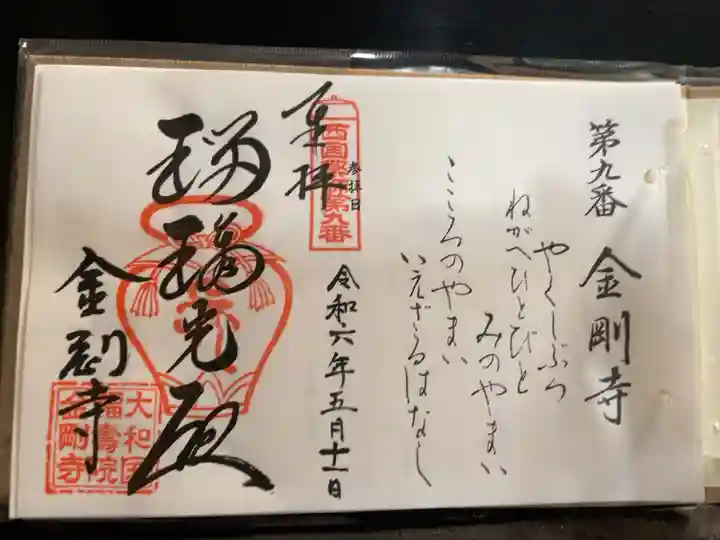 第九番 金剛寺
やくしぶつ
ねがへひとびと
みのやまい
こころのやまい
いえざるはなし
奉拝
西国薬師第九番
参拝日
令和六年五月十一日
瑠璃光殿
金剛寺
大和国
福寿院
金剛寺